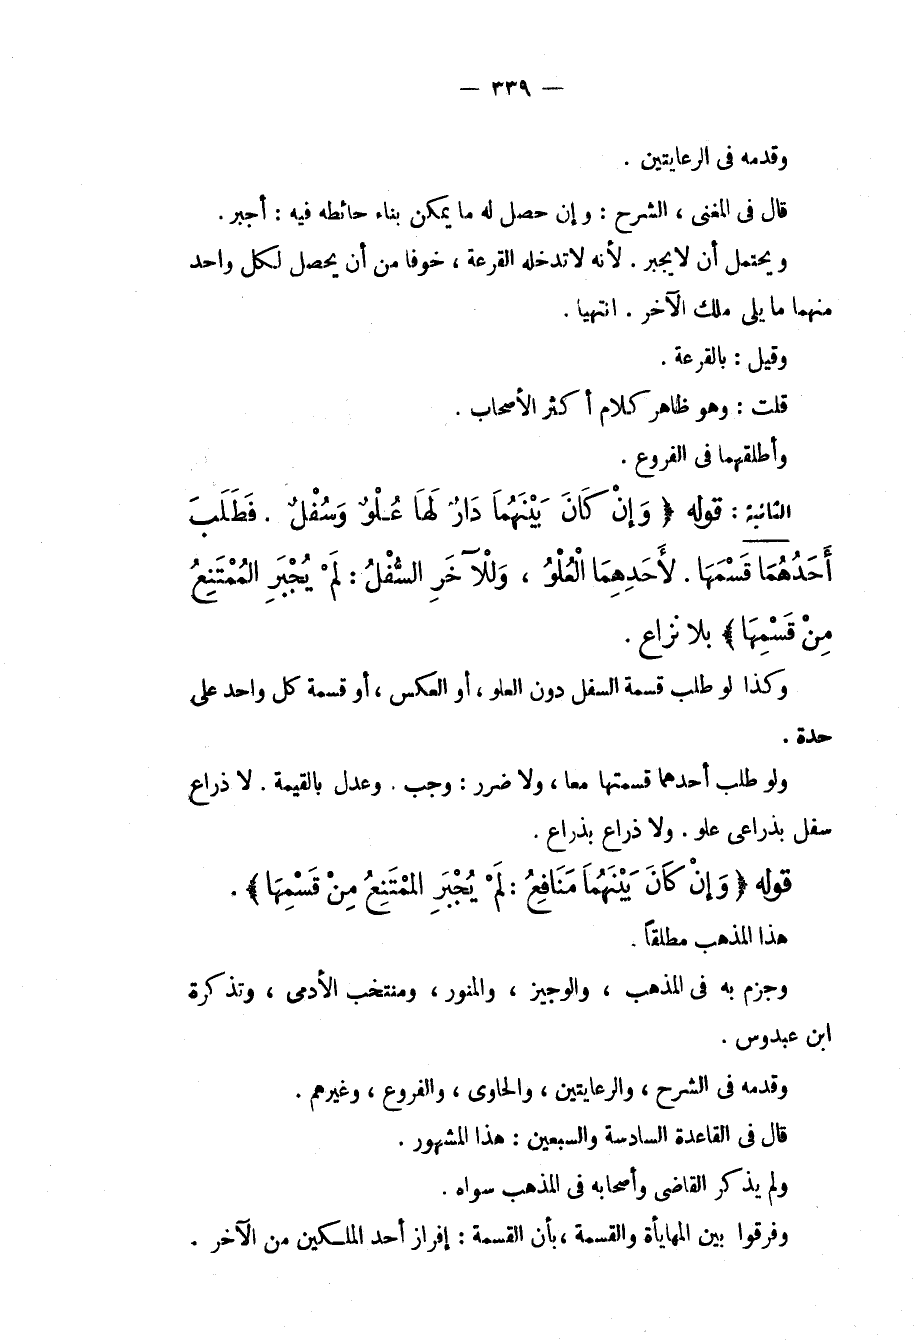 — ٣٣٩ —
وقدمه فى الرعايتين .
قال فى المغنى ، الشرح : وإن حصل له ما يمكن بناء حائطه فيه : أجبر .
ويحتمل أن لايجبر . لأنه لاتدخله القرعة ، خوفا من أن يحصل لكل واحد
منهما ما يلى ملك الآخر . انتهيا .
وقيل : بالقرعة .
قلت : وهو ظاهر كلام أكثر الأصحاب .
وأطلقهما فى الفروع .
الثانية : قوله ﴿ وَإِنْ كَانَ بَيْنَهُمَا دَارٌ لَهَا عُلْوٌ وَسُفْلٌ . فَطَلَبَ
أَحَدُهُمَا قَسْمَهَا . لأَحَدِهِمَا الْعُلْوُ ، وَلِلْآخَرِ السُّفْلُ : لَمْ يُجْبَرِ المُمْتَنِعُ
مِنْ قَسْمِهَا ﴾ بلا نزاع .
وكذا لو طلب قسمة السفل دون العلو ، أو العكس ، أو قسمة كل واحد على
حدة .
ولو طلب أحدهما قسمتها معا ، ولا ضرر : وجب . وعدل بالقيمة . لا ذراع
سفل بذراعى علو . ولا ذراع بذراع .
قوله ﴿ وَإِنْ كَانَ بَيْنَهُمَا مَنَافِعُ : لَمْ يُجْبَرِ المُمْتَنِعُ مِنْ قَسْمِهَا ﴾ .
هذا المذهب مطلقاً .
وجزم به فى المذهب ، والوجيز ، والمنور ، ومنتخب الأدمى ، وتذكرة
ابن عبدوس .
وقدمه فى الشرح ، والرعايتين ، والحاوى ، والفروع ، وغيرهم .
قال فى القاعدة السادسة والسبعين : هذا المشهور .
ولم يذكر القاضى وأصحابه فى المذهب سواه .
وفرقوا بين المهايأة والقسمة ، بأن القسمة : إفراز أحد الملكين من الآخر .